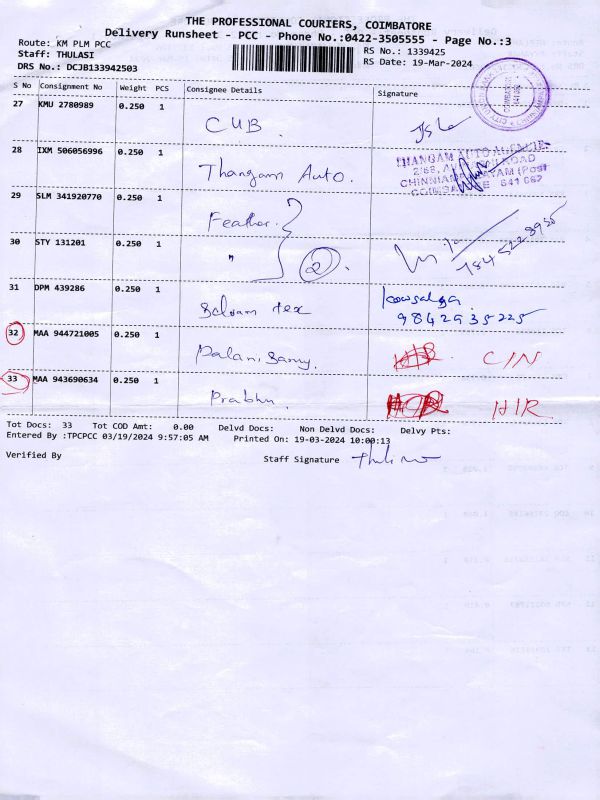 THE PROFESSIONAL COURIERS, COIMBATORE
Delivery Runsheet - PCC - Phone No.:0422-3505555 - Page No.:3
Route: KM PLM PCC
Staff: THULASI
RS No.: 1339425
DRS No.: DCJB133942503
RS Date: 19-Mar-2024
S No Consignment No Weight PCS Consignee Details Signature
27 KMU 2780989 0.250 1 CUB
28 IXM 506056996 0.250 1 Thangam Auto.
THANGAM AUTO AGENCIES
29 SLM 341920770 0.250 1 Feather
30 STY 131201 0.250 1 " 2
31 DPM 439286 0.250 1 Selvam tex
9842935225
32 MAA 944721005 0.250 1 Palani Samy. C/N
33 MAA 943690634 0.250 1 Prabhu.
Tot Docs: 33 Tot COD Amt: 0.00 Delvd Docs: Non Delvd Docs: Delvy Pts:
Entered By :TPCPCC 03/19/2024 9:57:05 AM Printed On: 19-03-2024 10:00:13
Verified By Staff Signature